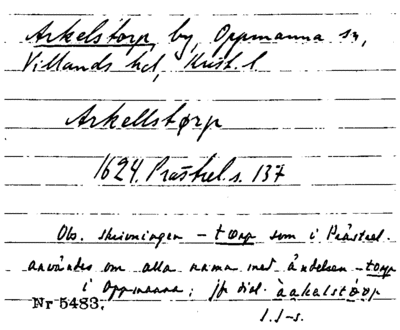 Arkelstorp, by, Oppmanna sn,
Villands hd, Krist. l.
Arkellstørp
1624. Prästrel. s. 137
Obs. skrivningen -tørp som i Prästrel.
användes om alla namn med ändelsen -torp
i Oppmanna; jfr dial. àakalstǿrp
Nr 5483.
I. I-s.